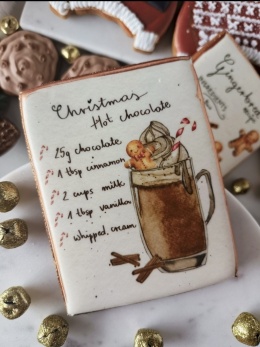 Christmas
Hot chocolate
25g chocolate
1 tbsp cinnamon
2 cups milk
1 tbsp vanilla
whipped cream
Gingerbread